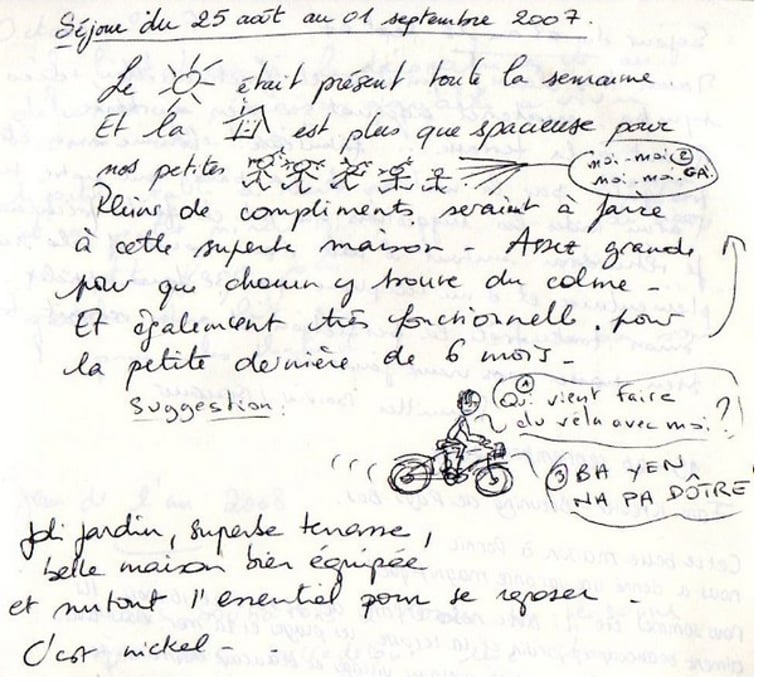 Séjour du 25 août au 01 septembre 2007.
Le était présent toute la semaine
Et la est plus que spacieuse pour
nos petites
moi. moi. 2
moi. moi. GA.
Pleins de compliments seraient à faire
à cette superbe maison - Assez grande
pour que chacun y trouve du calme -
Et également très fonctionnelle pour
la petite dernière de 6 mois -
Suggestion:
1
Qui vient faire
du vélo avec moi ?
3 BA YEN
NA PA DÔTRE
Joli jardin, superbe terrasse,
belle maison bien équipée
et surtout l'essentiel pour se reposer
C'est nickel - . .